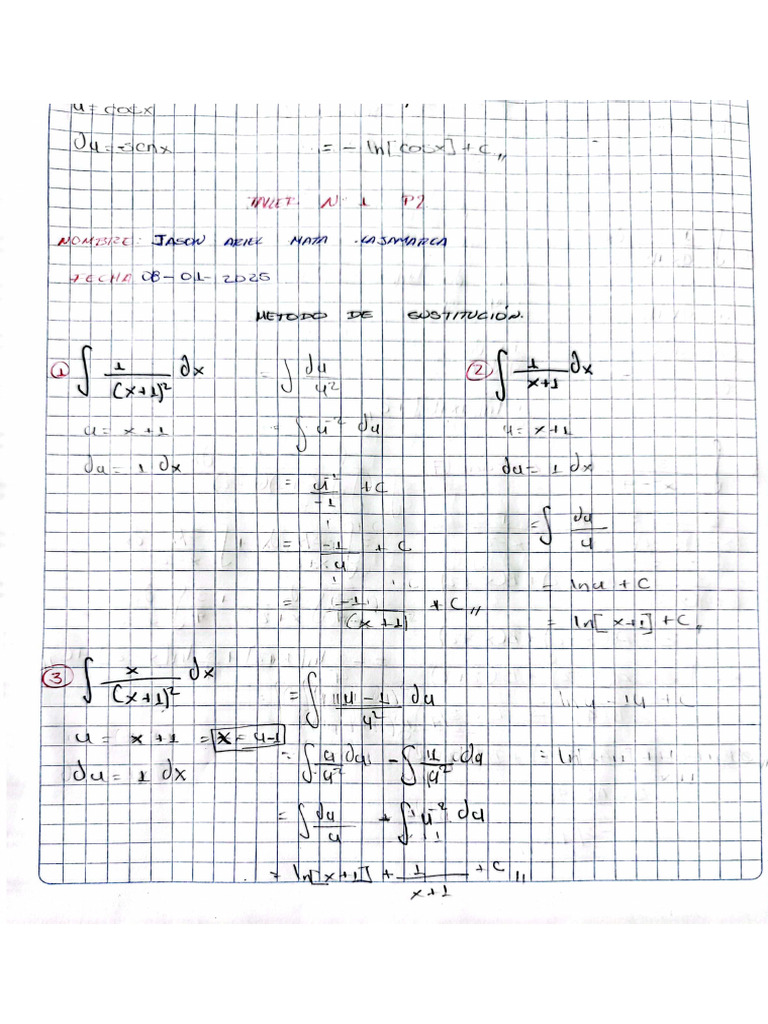 u = cosx
du = -senx = - ln[cosx] + c,,
N 1 P2
NOMBRE: JASON ARIEL MATA CAJAMARCA
FECHA 08-01-2025
METODO DE SUSTITUCIÓN.
① ∫ 1/(x+1)² dx = ∫ du/u²
u = x+1 = ∫ u⁻² du
du = 1 dx = u⁻¹/-1 + c
= -1/u + c
= -1/(x+1) + c,,
② ∫ 1/x+1 dx
u = x+1
du = 1 dx
= ∫ du/u
= ln u + c
= ln[x+1] + c,,
③ ∫ x/(x+1)² dx = ∫ u-1/u² du
u = x+1 = x = u-1 = ∫ u/u² du - ∫ /u² du = ln
du = 1 dx
= ∫ du/u + ∫ u⁻² du
= ln[x+1] + 1/x+1 + c,,